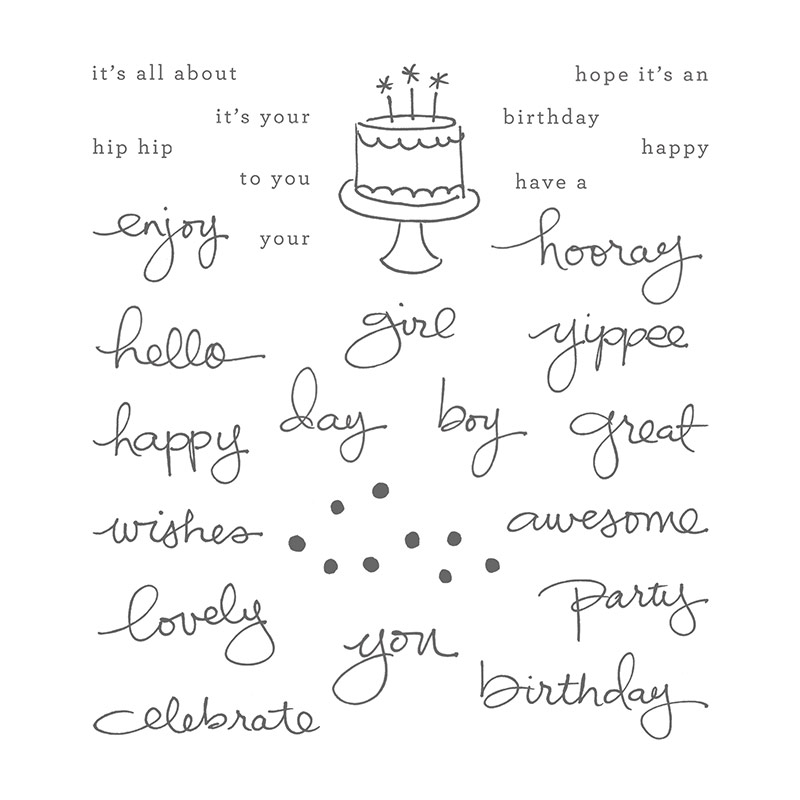 it's all about
hope it's an
it's your
birthday
hip hip
happy
to you
have a
enjoy
your
hooray
hello
girl
yippee
happy
day
boy
great
wishes
awesome
lovely
party
you
birthday
celebrate